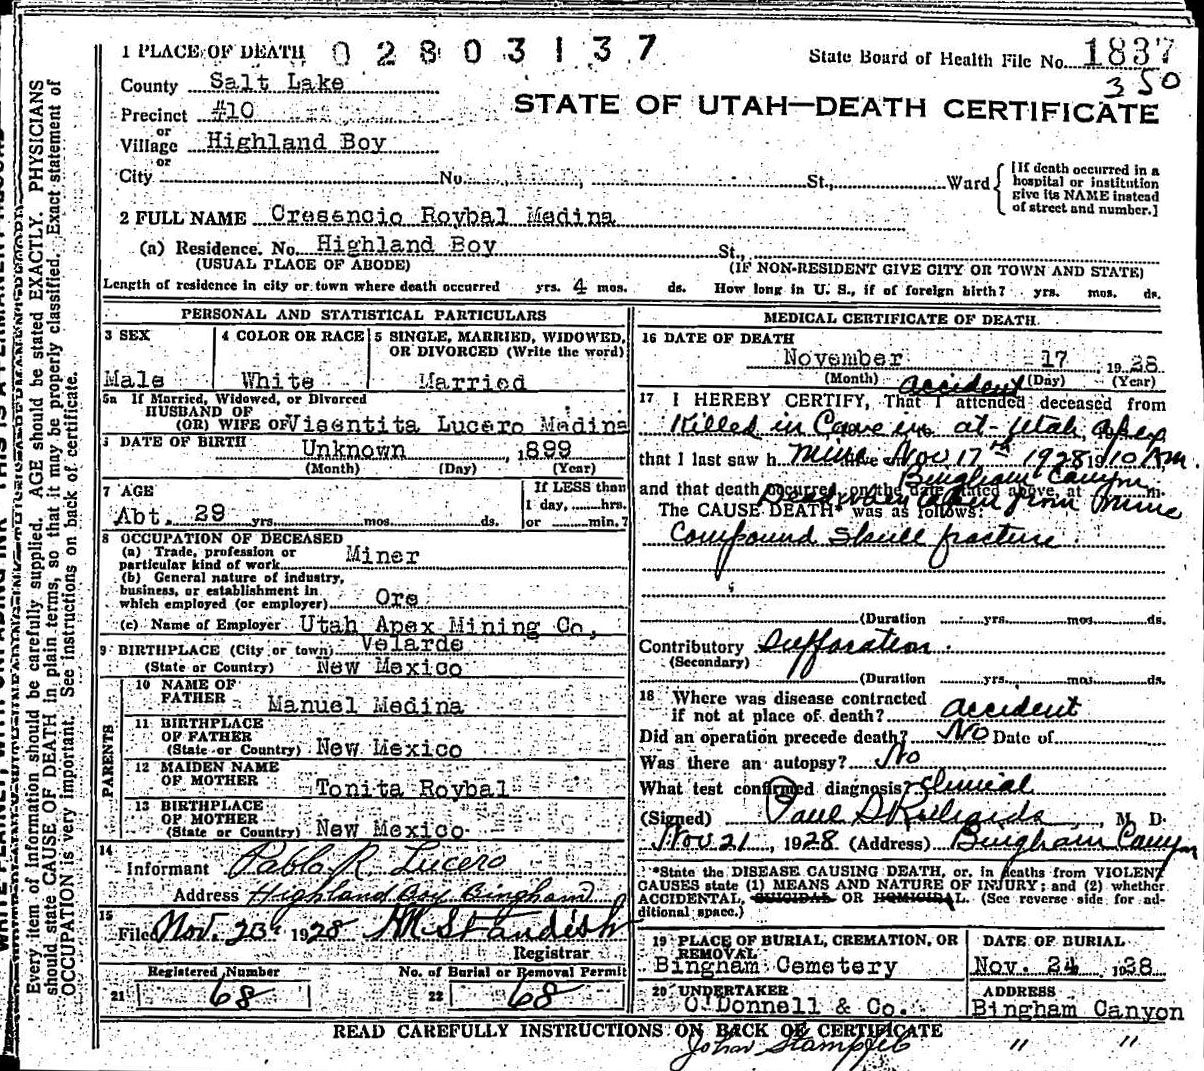 1 PLACE OF DEATH 02803137
State Board of Health File No. 1837
350
County Salt Lake
STATE OF UTAH—DEATH CERTIFICATE
Precinct #10
or
Village Highland Boy
or
City No. St., Ward
[If death occurred in a hospital or institution give its NAME instead of street and number.]
2 FULL NAME Cresencio Roybal Medina
(a) Residence. No. Highland Boy St.,
(USUAL PLACE OF ABODE) (IF NON-RESIDENT GIVE CITY OR TOWN AND STATE)
Length of residence in city or town where death occurred yrs. 4 mos. ds. How long in U. S., if of foreign birth? yrs. mos. ds.
PERSONAL AND STATISTICAL PARTICULARS
3 SEX
Male
4 COLOR OR RACE
White
5 SINGLE, MARRIED, WIDOWED, OR DIVORCED (Write the word)
Married
5a If Married, Widowed, or Divorced
HUSBAND OF
(OR) WIFE OF Visentita Lucero Medina
DATE OF BIRTH
Unknown , 1899
(Month) (Day) (Year)
7 AGE
Abt. 29 yrs. mos. ds.
If LESS than
1 day, hrs.
or min.?
8 OCCUPATION OF DECEASED
(a) Trade, profession or
particular kind of work Miner
(b) General nature of industry,
business, or establishment in
which employed (or employer) Ore
(c) Name of Employer Utah Apex Mining Co,
9 BIRTHPLACE (City or town) Velarde
(State or Country) New Mexico
PARENTS
10 NAME OF
FATHER Manuel Medina
11 BIRTHPLACE
OF FATHER
(State or Country) New Mexico
12 MAIDEN NAME
OF MOTHER Tonita Roybal
13 BIRTHPLACE
OF MOTHER
(State or Country) New Mexico
14
Informant Pablo R. Lucero
Address Highland Boy Bingham
15
Filed Nov. 23, 1928 HM Standish
Registrar
Registered Number No. of Burial or Removal Permit
21 68 22 68
MEDICAL CERTIFICATE OF DEATH
16 DATE OF DEATH
November 17 1928
(Month) (Day) (Year)
accident
17 I HEREBY CERTIFY, That I attended deceased from
Killed in Cave in at Utah Apex
that I last saw h mine Nov 17th 1928 10 AM
Bingham Canyon
and that death occurred, on the date stated above, at m.
Dead when taken from mine
The CAUSE DEATH* was as follows:
Compound Skull fracture
(Duration yrs. mos. ds.
Contributory Suffocation
(Secondary)
(Duration yrs. mos. ds.
18 Where was disease contracted
if not at place of death? accident
Did an operation precede death? No Date of
Was there an autopsy? No
What test confirmed diagnosis? Clinical
(Signed) Paul S Richards, M. D.
Nov 21, 1928 (Address) Bingham Canyon
*State the DISEASE CAUSING DEATH, or, in deaths from VIOLENT
CAUSES state (1) MEANS AND NATURE OF INJURY; and (2) whether
ACCIDENTAL, SUICIDAL OR HOMICIDAL. (See reverse side for ad-
ditional space.)
19 PLACE OF BURIAL, CREMATION, OR
REMOVAL
Bingham Cemetery
DATE OF BURIAL
Nov. 24 1928
20 UNDERTAKER
O'Donnell & Co.
ADDRESS
Bingham Canyon
READ CAREFULLY INSTRUCTIONS ON BACK OF CERTIFICATE
John Stampfel " "
Every item of information should be carefully supplied. AGE should be stated EXACTLY. PHYSICIANS
should state CAUSE OF DEATH in plain terms, so that it may be properly classified. Exact statement of
OCCUPATION is very important. See instructions on back of certificate.